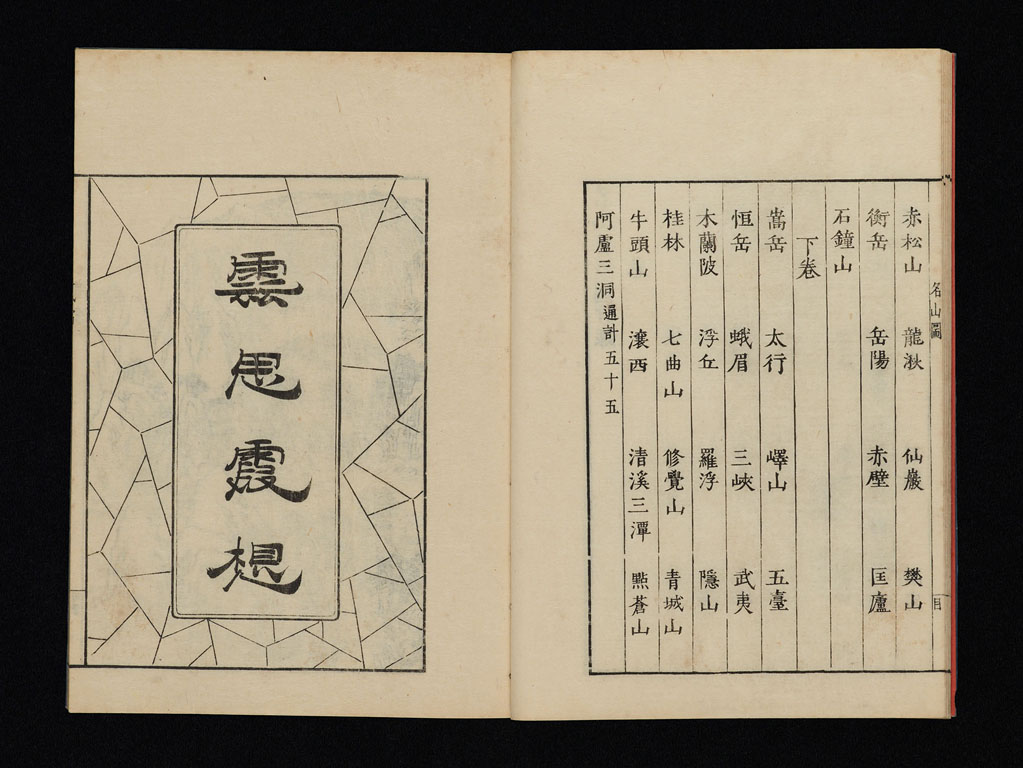 名山圖
目
赤松山 龍湫 仙巖 樊山
衡岳 岳陽 赤壁 匡廬
石鐘山
下卷
嵩岳 太行 嶧山 五臺
恒岳 蛾眉 三峽 武夷
木蘭陂 浮丘 羅浮 隱山
桂林 七曲山 修覺山 青城山
牛頭山 瀼西 清溪三潭 㸃蒼山
阿盧三洞 通計五十五
雲思霞想